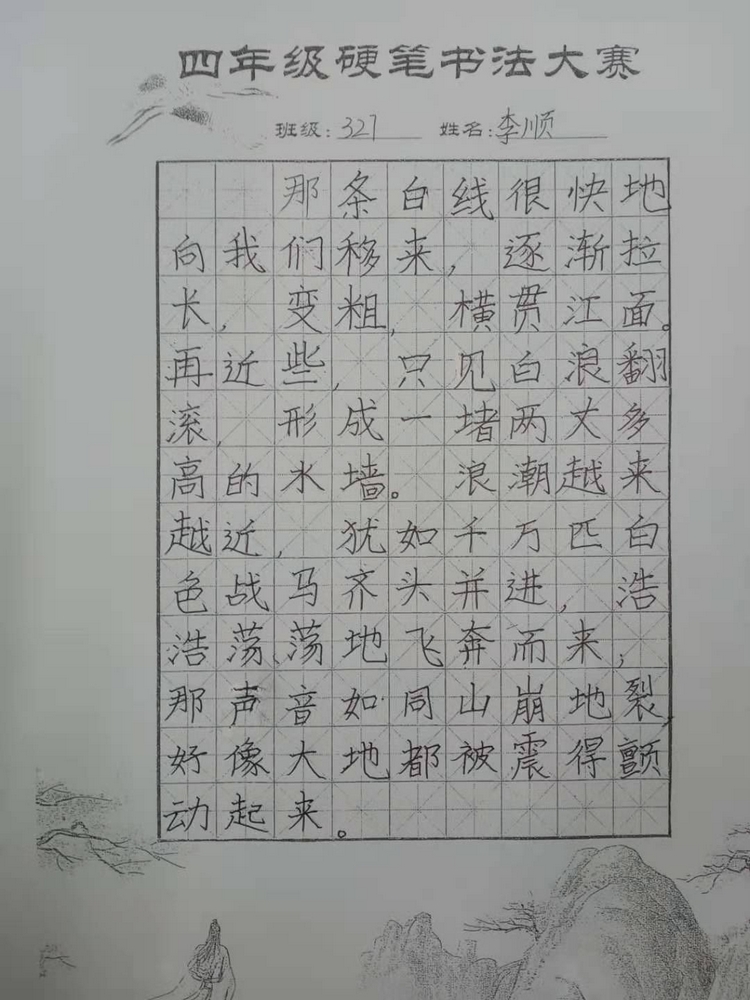 四年级硬笔书法大赛
班级：327 姓名：李顺
那条白线很快地
向我们移来，逐渐拉
长，变粗，横贯江面。
再近些，只见白浪翻
滚，形成一堵两丈多
高的水墙。浪潮越来
越近，犹如千万匹白
色战马齐头并进，浩
浩荡、荡地飞奔而来，
那声音如同山崩地裂，
好像大地都被震得颤
动起来。